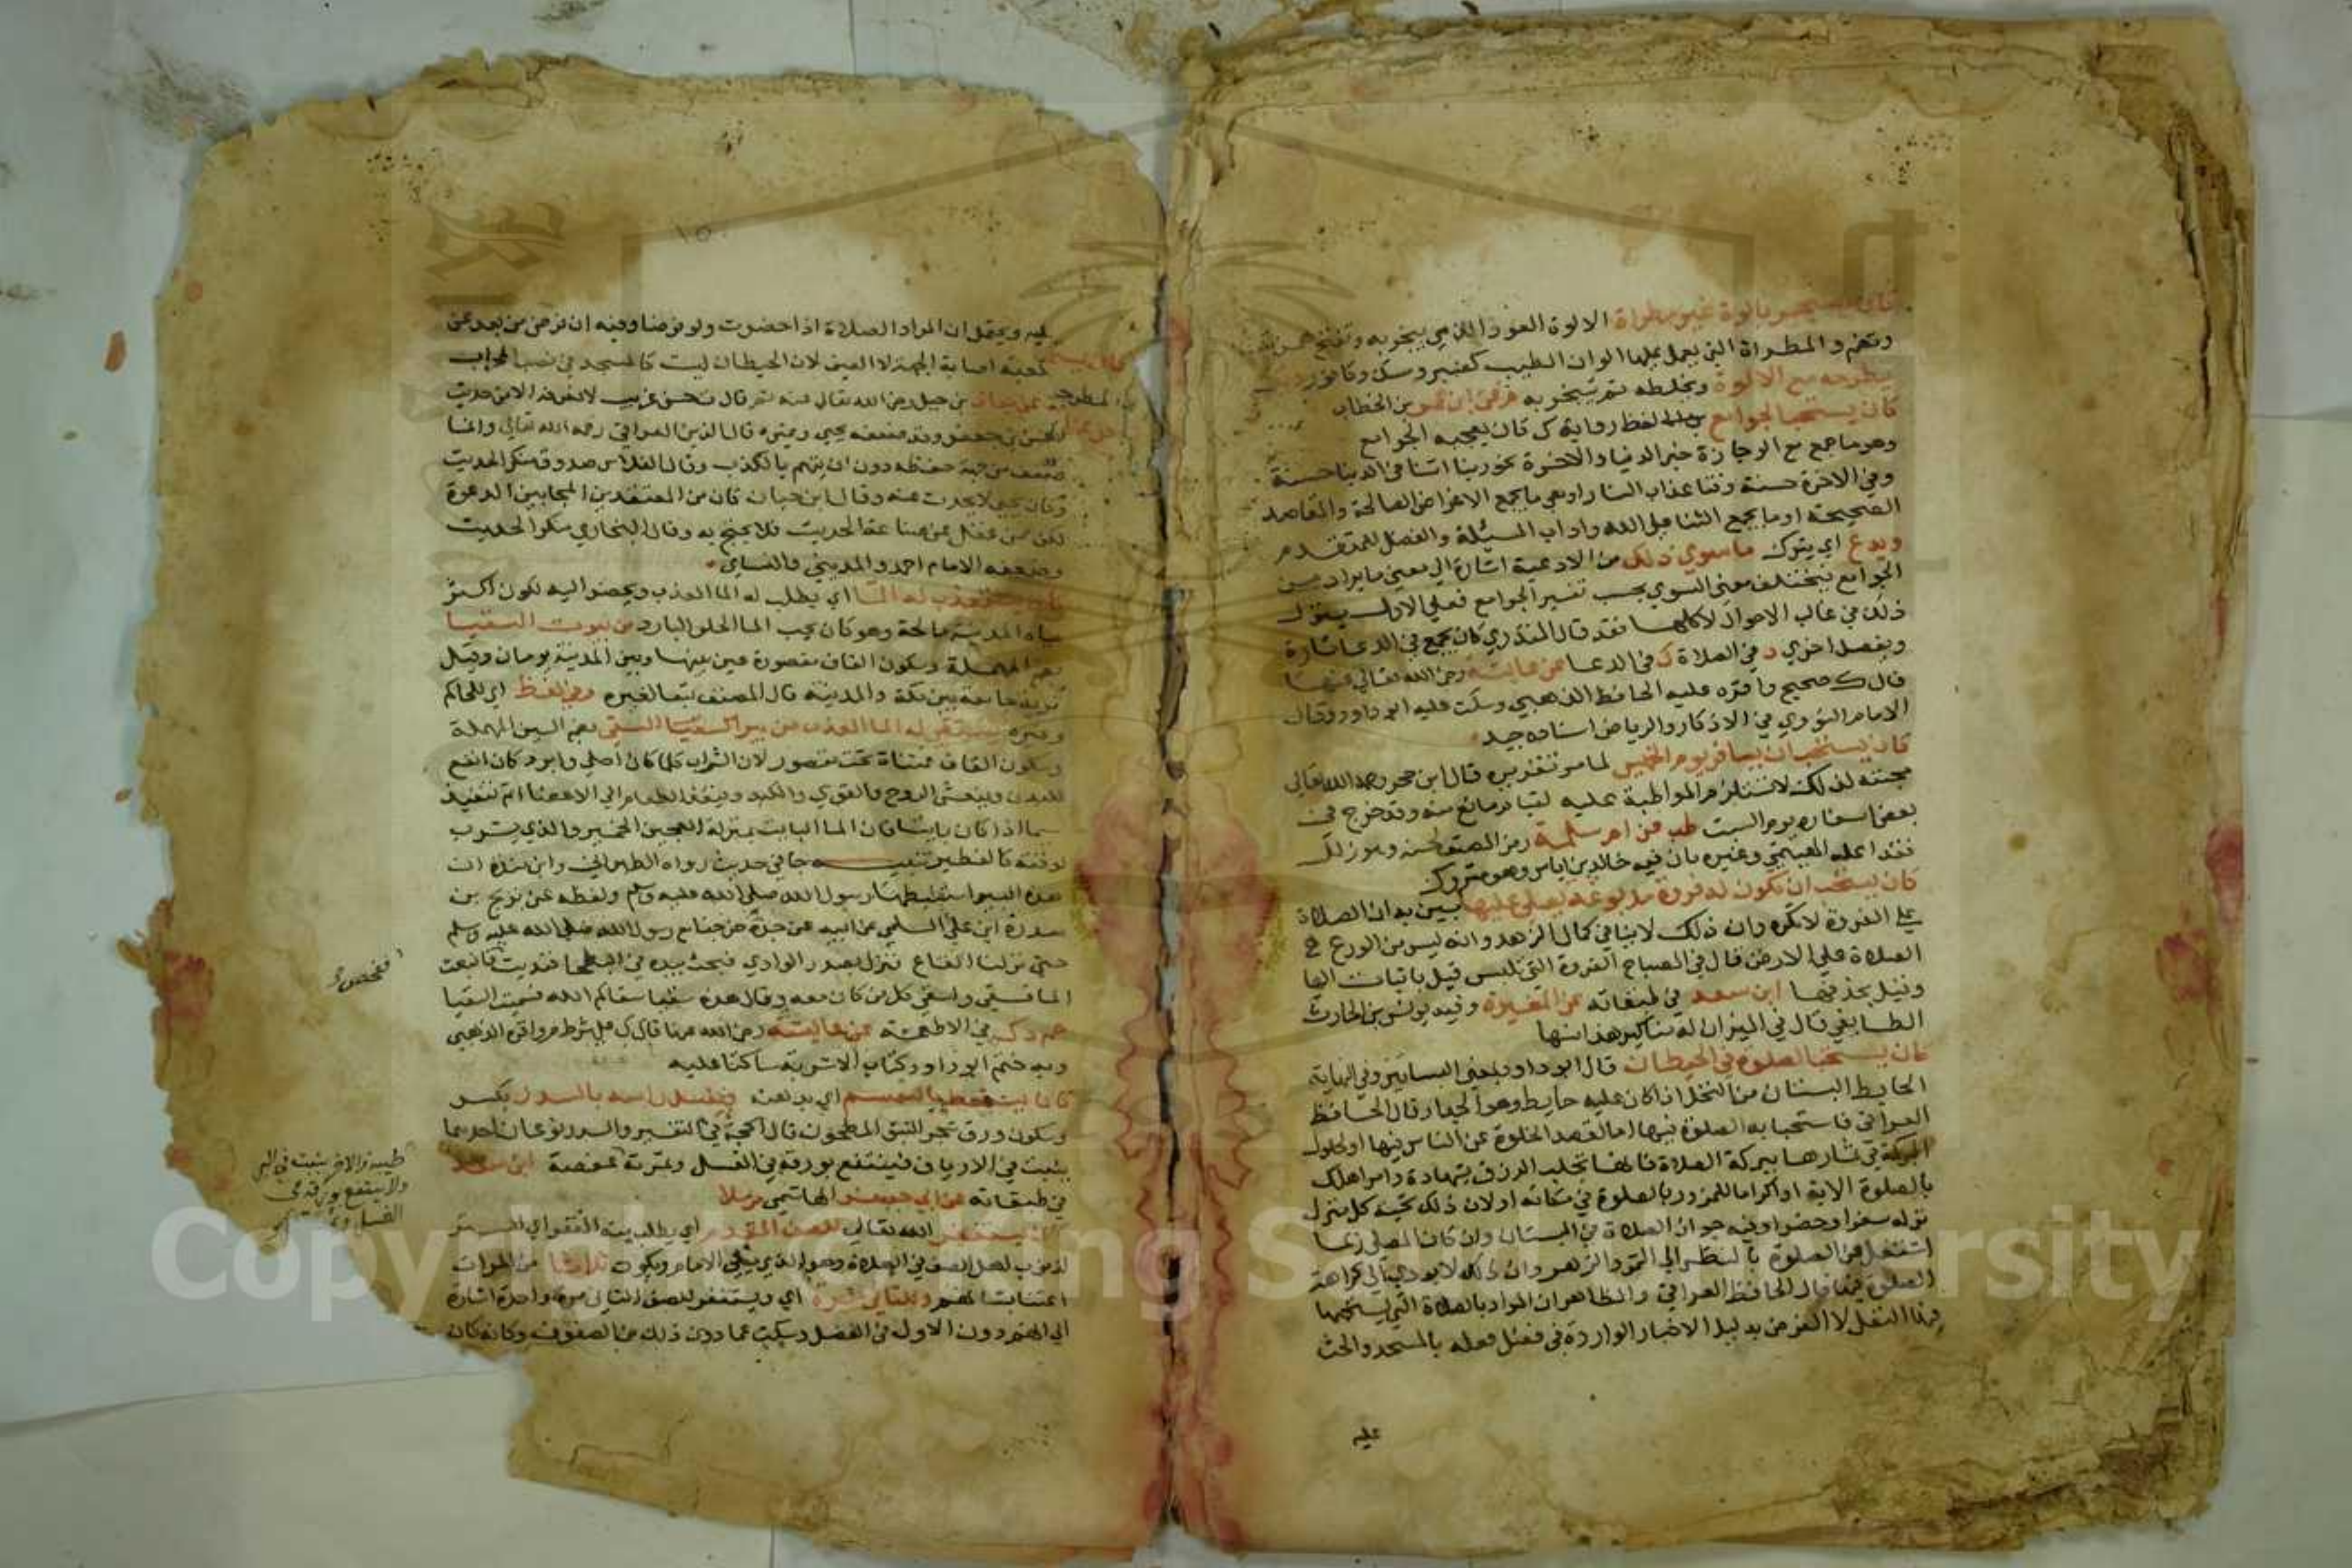 كان يستجمر بالوة غير مطراة الالوة العود الذي يتبخر به وتفتح همزته
وتضم والمطراة التي يعمل عليها الوان الطيب كعنبر ومسك وكافور
يطرحه مع الالوة ويخلطه ثم يتبخر به م عن ابن عمر بن الخطاب
كان يستحب الجوامع من الدعا لفظ رواية ك كان يعجبه الجوامع
وهو ما جمع مع الوجازة خير الدنيا والاخرة نحو ربنا اتنا في الدنيا حسنة
وفي الاخرة حسنة وقنا عذاب النار او هي ما يجمع الاغراض الصالحة والمقاصد
الصحيحة او ما يجمع الثنا على الله واداب المسئلة والفضل للمتقدم
ويدع اي يترك ما سوي ذلك من الادعية اشارة الي معني ما يراد من
الجوامع فيختلف معني السوي بحسب تفسير الجوامع فعلي الاول ينزل
ذلك في غالب الاحوال لا كلها فقد قال المنذري كان يجمع في الدعا تارة
ويفصل اخري د في الصلاة ك في الدعا عن عايشة رضي الله تعالي عنها
قال ك صحيح واقره عليه الحافظ الذهبي وسكت عليه ابو داود وقال
الامام النووي في الاذكار والرياض اسناده جيد
كان يستحب ان يسافر يوم الخميس لما مر تقريره قال ابن حجر رحمه الله تعالي
محبته لذلك لا تستلزم المواظبة عليه لقيام مانع منه وقد خرج في
بعض اسفاره يوم السبت طب عن ام سلمة رمز المصنف لحسنه وهو زلل
فقد اعله الهيثمي وغيره بان فيه خالد بن اياس وهو متروك
كان يستحب ان تكون له فروة مدبوغة يصلي عليها بين به ان الصلاة
علي الفروة لا تكره وان ذلك لا ينافي كمال الزهد وانه ليس من الورع
الصلاة علي الارض قال في المصباح الفروة التي تلبس قيل باثبات الها
وقيل بحذفها ابن سعد في طبقاته عن المغيرة وفيه يونس بن الحارث
الطايفي قال في الميزان له مناكير هذا منها
كان يستحب الصلوة في الحيطان قال ابو داود يعني البساتين وفي النهاية
الحايط البستان من النخل اذا كان عليه حايط وهو الجدار قال الحافظ
العراقي فاستحبابه الصلوة فيها اما لقصد الخلوة عن الناس فيها او لحلول
البركة في ثمارها ببركة الصلاة فانها تجلب الرزق بشهادة وامر اهلك
بالصلوة الاية او اكراما للمزور بالصلوة في مكانه او لان ذلك تحية كل منزل
نزله سفرا وحضرا وفيه جواز الصلاة في البستان وان كان المصلي ربما
اشتغل عن الصلوة بالنظر الي الثمر والزهر وان ذلك لا يودي الي كراهة
الصلوة فيها قال الحافظ العراقي والظاهر ان المراد بالصلاة التي يستحبها
فيها النفل لا الفرض بدليل الاخبار الواردة في فضل فعله بالمسجد والحث
عليه
١٥
عليه ويحتمل ان المراد الصلاة اذا حضرت ولو فرضا وفيه ان فرض من بعد عن
الكعبة اصابة الجهة لا العين لان الحيطان ليست كالمسجد في نصب المحراب
عن معاذ بن جبل رضي الله تعالي عنه ثم قال ت حسن غريب لا نعرفه الا من حديث
الحسن بن جعفر وقد ضعفه يحيي وغيره قال الزين العراقي رحمه الله تعالي وانما
ضعف من جهة حفظه دون ان يتهم بالكذب وقال الفلاس صدوق منكر الحديث
وكان يحيي لا يحدث عنه وقال ابن حبان كان من المتعبدين المجابين الدعوة
لكن ممن غفل عن صناعة الحديث فلا يحتج به وقال البخاري منكر الحديث
وضعفه الامام احمد والمديني والنساي
كان يستعذب له الما اي يطلب له الما العذب ويحضر اليه لكون اكثر
مياه المدينة مالحة وهو كان يحب الما الحلو البارد من بيوت السقيا
بضم المهملة وسكون القاف مقصورة عين بينها وبين المدينة يومان وقيل
قرية جامعة بين مكة والمدينة قال المصنف تبعا لغيره وفي لفظ اي للحاكم
وغيره يستقي له الما العذب من بير السقيا السقي بضم السين المهملة
وسكون القاف فمثناة تحت مقصور لان الشراب كلما كان احلي وابرد كان انفع
للبدن وينعش الروح والقوي والكبد وينفذ الطعام الي الاعضا اتم تنفيذ
سيما اذا كان بايتا فان الما البايت بمنزلة العجين الخمير والذي يشرب
لوقته كالفطير تنبيه جا في حديث رواه الطبراني وابن منده ان
هذه البير استنبطها رسول الله صلي الله عليه وسلم ولفظه عن بريح بن
سدرة ابن علي السلمي عن ابيه عن جده خرجنا مع رسول الله صلي الله عليه وسلم
حتي نزلنا القاع فنزل بصدر الوادي فبحث بيده في البطحا فنديت فانبعث
الما فسقي واسقي كل من كان معه وقال هذه سقيا سقاكم الله فسميت السقيا
حم د ك في الاطعمة عن عايشة رضي الله عنها قال ك علي شرط م واقره الذهبي
وبه ختم ابو داود كتاب الاشربة ساكتا عليه
كان يستعط بالسمسم اي بدهنه ويغسل راسه بالسدر بكسر
وسكون ورق شجر النبق المطحون قال الحجة في التفسير والسدر نوعان احدهما
ينبت في الارياف فينتفع بورقه في الغسل وثمرته عفصة ابن سعد
في طبقاته عن ابي جعفر الهاشمي مرسلا
كان يستغفر الله تعالي للصف المقدم اي يطلب منه الغفر اي الستر
لذنوب اهل الصف في الصلاة وهو الذي يلي الامام ويكون ثلاثا من المرات
اعتنا بشانهم وللثاني مرة اي ويستغفر للصف الثاني مرة واحدة اشارة
الي انهم دون الاول في الفضل وسكت عما دون ذلك من الصفوف وكانه كان
ففحص